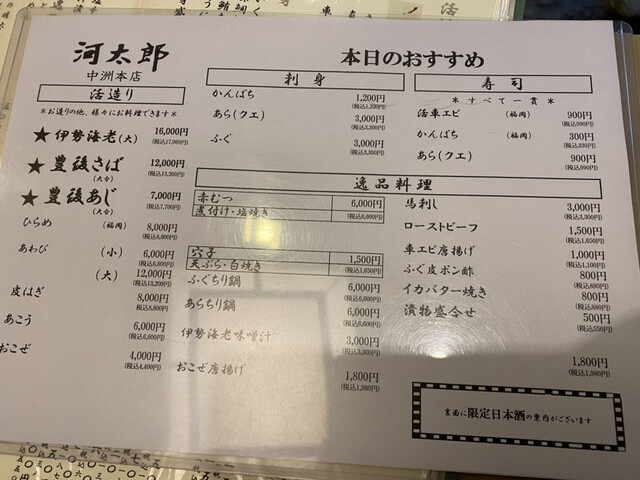 河太郎
中洲本店
活造り
*お造りの他、様々にお料理できます*
★伊勢海老(大) 16,000円
★豊後さば 12,000円
(大分) (税込13,200円)
★豊後あじ 7,000円
(大分) (税込7,700円)
ひらめ (福岡) 8,000円
(税込8,800円)
あわび (小) 6,000円
(税込6,600円)
(大) 12,000円
(税込13,200円)
皮はぎ 8,000円
(税込8,800円)
あこう 6,000円
(税込6,600円)
おこぜ 4,000円
(税込4,400円)
本日のおすすめ
刺身
かんぱち 1,200円
(税込1,320円)
あら(クエ) 3,000円
(税込3,300円)
ふぐ 3,000円
(税込3,300円)
寿司
*すべて一貫*
活車エビ (福岡) 900円
(税込990円)
かんぱち (福岡) 300円
(税込330円)
あら(クエ) 900円
(税込990円)
逸品料理
赤むつ 6,000円
煮付け・塩焼き (税込6,600円)
穴子 1,500円
天ぷら・白焼き (税込1,650円)
ふぐちり鍋 6,000円
(税込6,600円)
あらちり鍋 6,000円
伊勢海老味噌汁 3,000円
(税込3,300円)
おこぜ唐揚げ 1,800円
(税込1,980円)
馬刺し 3,000円
(税込3,300円)
ローストビーフ 1,500円
(税込1,650円)
車エビ唐揚げ 1,000円
(税込1,100円)
ふぐ皮ポン酢 800円
(税込880円)
イカバター焼き 800円
(税込880円)
漬物盛合せ 500円
(税込550円)
1,800円
(税込1,980円)
裏面に限定日本酒の案内がございます